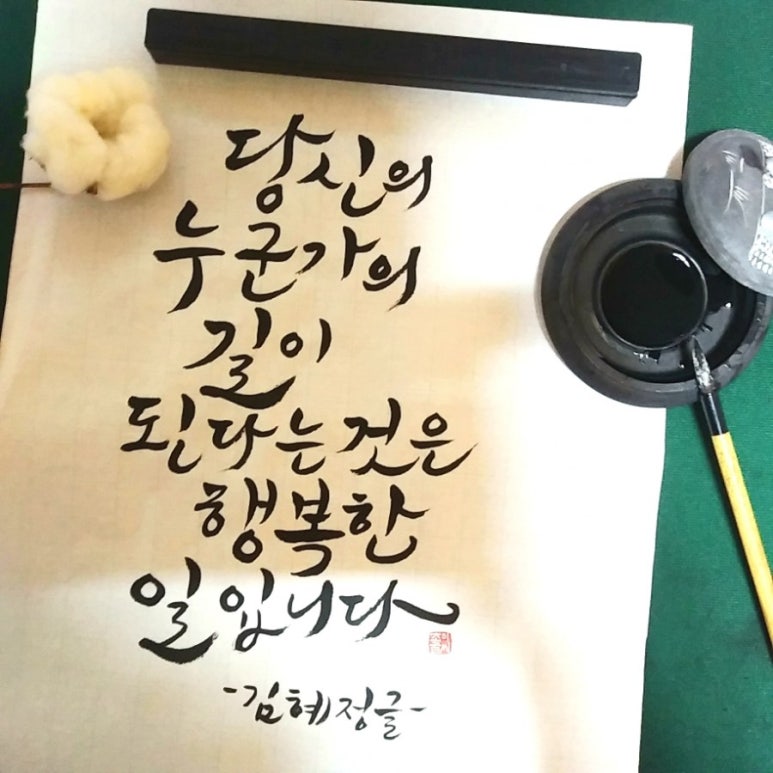 당신의
누군가의
길이
된다는것은
행복한
일입니다
-김혜정글-